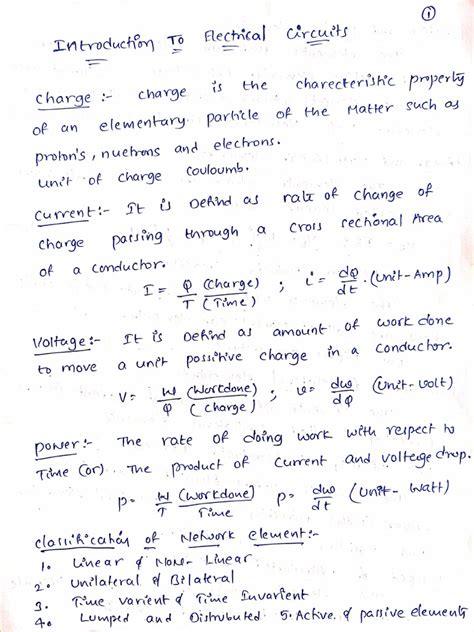 ①
Introduction To Electrical Circuits
charge :- charge is the charecteristic property
of an elementary particle of the Matter such as
proton's, nuetrons and electrons.
unit of charge Couloumb.
Current:- It is Defind as rate of change of
charge passing through a cross sectional Area
of a conductor.
I = Q (charge) / T (Time) ; i = dQ/dt . (Unit-Amp)
Voltage:- It is Defind as amount of work done
to move a unit possitive charge in a conductor.
V = W (Workdone) / Q (charge) ; v = dw/dQ (Unit-volt)
power:- The rate of doing work with respect to
Time (or) The product of current and voltege drop.
p = W (Workdone) / T Time p = dw/dt (Unit- Watt)
classification of Network element:-
1. Linear & Non- Linear
2. Unilateral & Bilateral
3. Time varient & Time Invarient
4. Lumped and Distrubuted 5. Active & passive elements